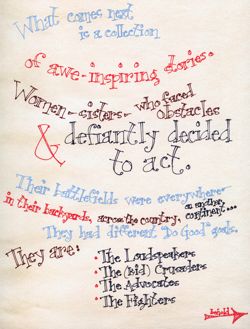 What comes next
is a collection
of awe-inspiring stories.
Women - sisters - who faced
obstacles
& defiantly decided
to act.
Their battlefields were everywhere -
in their backyards, across the country, on another
continent...
They had different "Do Good" goals.
They are:
• The Loudspeakers
• The (Kid) Crusaders
• The Advocates
• The Fighters